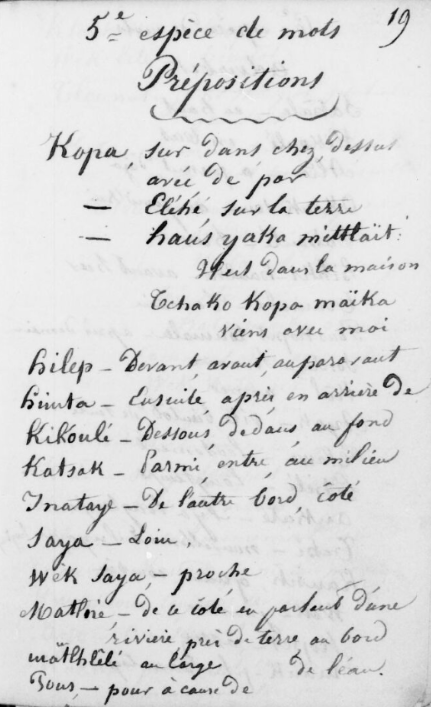 19
5e espèce de mots
Prépositions
Kopa, sur dans chez, dessus
avec de par
— Eléhé sur la terre
— haus yaka mitlaït:
Il est dans la maison
Tchako Kopa maïka
viens avec moi
hilep — Devant avant auparavant
himta — Ensuite après en arrière de
Kikoulé — Dessous dedans au fond
Katsak — Parmi, entre au milieu
Inataye — De l'autre bord, coté
Saya — Loin,
Wek Saya, — proche
Mathné — de ce coté en parlant d'une
rivière près de terre au bord
de l'eau.
mäthlélé au large
Pous, — pour à cause de